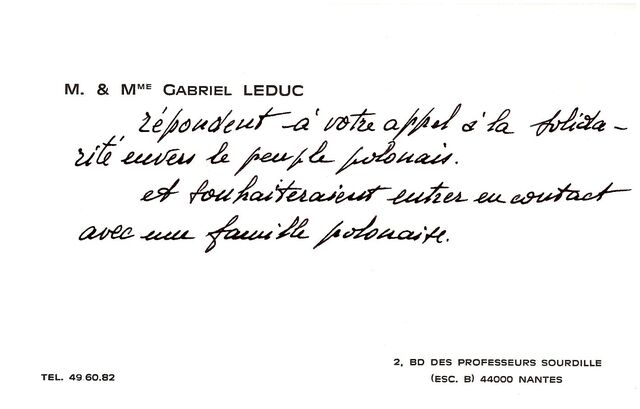 M. & MME GABRIEL LEDUC
répondent à votre appel à la solida-
rité envers le peuple polonais.
et souhaiteraient entrer en contact
avec une famille polonaise.
2, BD DES PROFESSEURS SOURDILLE
TEL. 49 60.82
(ESC. B) 44000 NANTES